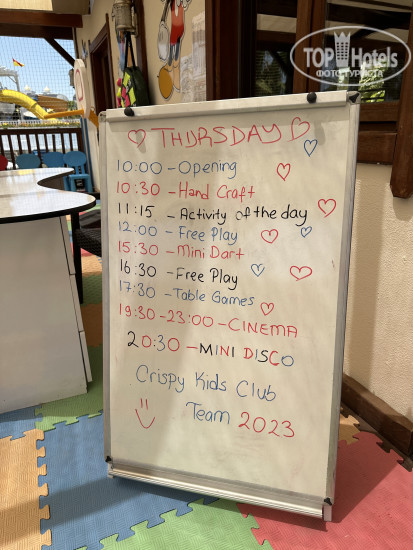 TOPHotels
ФОТО ТУРИСТА
THURSDAY
10:00 - Opening
10:30 - Hand Craft
11:15 - Activity of the day
12:00 - Free Play
15:30 - Mini Dart
16:30 - Free Play
17:30 - Table Games
19:30 - 23:00 - CINEMA
20:30 - MINI DISCO
Crispy Kids Club
Team 2023